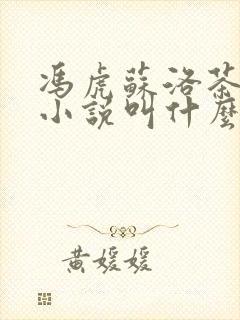 馮虎蘇洛荼
小說叫什麼
黃媛媛